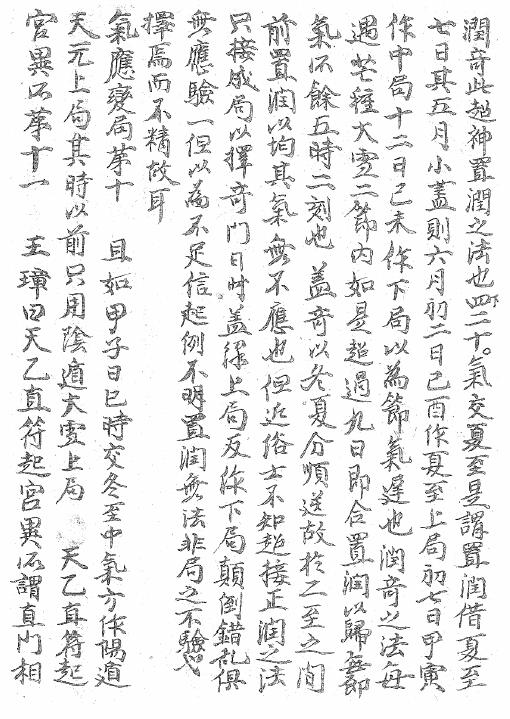 潤奇此超神置潤之法也四二十。氣交夏至是謂置潤借夏至
七日其五月小盖則六月初二日己酉作夏至上局初七日甲寅
作中局十二日己未作下局以為節氣遲也潤奇之法每
遇芒種大雪二節内如是超過九日即合置潤以歸每節
氣所餘五時二刻也 盖奇以冬夏分順逆故於二至之間
前置潤以均其氣無不應也但近俗士不知超接正潤之法
只接成局以擇奇門日時盖緣上局反作下局顛倒錯乱俱
無應驗一但以為不足信起例不明置潤無法非局之不驗也
擇焉而不精故耳
氣應變局苐十 且如甲子日巳時交冬至中氣方作陽遁
天元上局其時以前只用陰遁大雪上局 天乙直符起
宮異所苐十一 王璋曰天乙直符起宮異所謂直門相